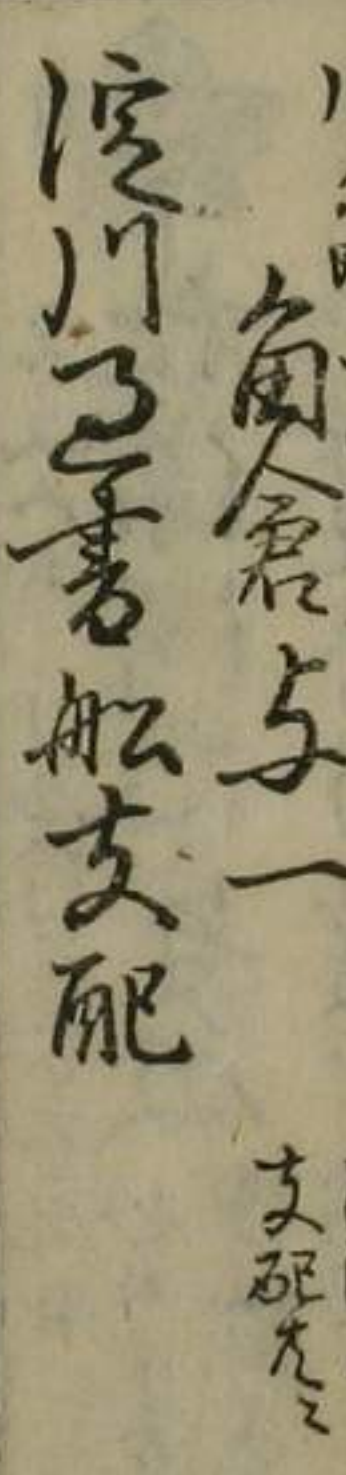 角倉与一
支配
淀川過書船支配